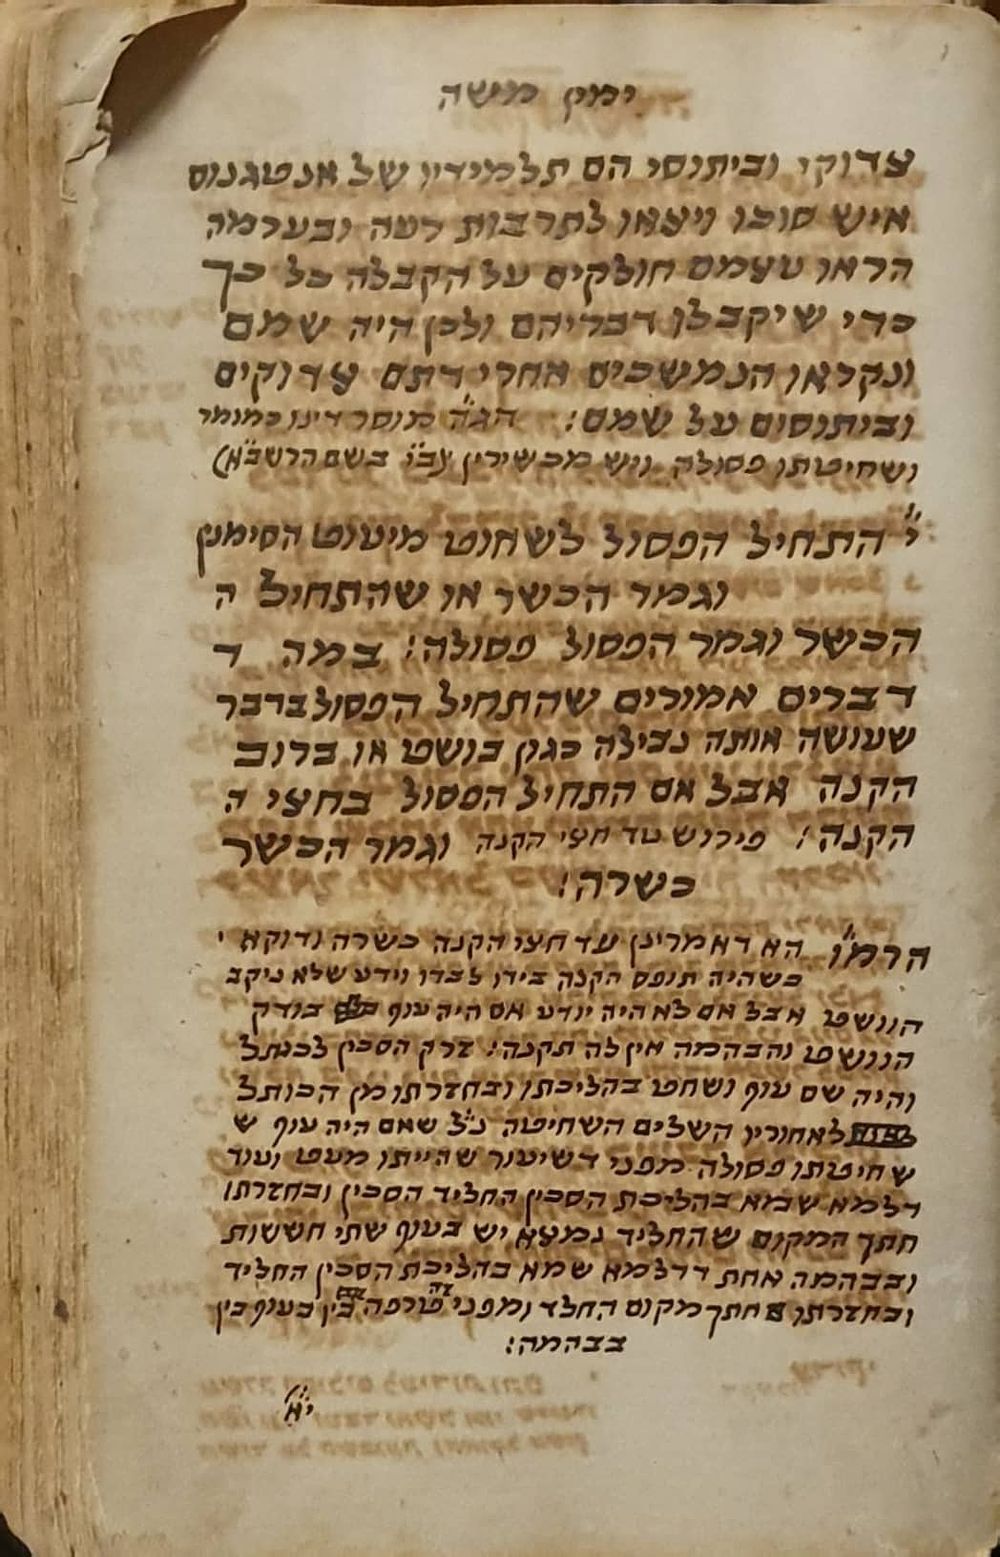 ימין משה
צדוקי וביתוסי הם תלמידיו של אנטגנוס
איש סוכו ויצאו לתרבות רעה ובערמה
הראו עצמם חולקים על הקבלה כל כך
כדי שיקבלו דבריהם ולכן היה שמם
ונקראו הנמשכים אחרי דתם צדוקים
וביתוסים על שמם: הג״ה מוסר דינו כמומר
ושחיטתו פסולה ויש מכשירין (ב״י בשם הרשב״א)
י״ התחיל הפסול לשחוט מיעוט הסימנין
וגמר הכשר או שהתחיל ה
הכשר וגמר הפסול פסולה: במה ד
דברים אמורים שהתחיל הפסול בדבר
שעושה אותה נבילה כגון בושט או ברוב
הקנה אבל אם התחיל הפסול בחצי ה
הקנה: פירוש עד חצי הקנה וגמר הכשר
כשרה:
הרמ״ו הא דאמרינן עד חצי הקנה כשרה ודוקא י
כשהיה תופס הקנה בידו לבדו וידע שלא ניקב
הוושט אבל אם לא היה יודע אם היה עוף בודק
הוושט והבהמה אין לה תקנה: זרק הסכין לכותל
והיה שם עוף ושחט בהליכתו ובחזרתו מן הכותל
לאחוריו השלים השחיטה נ״ל שאם היה עוף ש
שחיטתו פסולה מפני דשיעור שהייתו מעט ועוד
דלמא שמא בהליכת הסכין החליד הסכין ובחזרתו
חתך המקום שהחליד נמצא יש בעוף שתי חששות
ובבהמה אחת דדלמא שמא בהליכת הסכין החליד
ובחזרתו חתך מקום החלד ומפני זה טורפה בין בעוף בין
בבהמה:
י״א